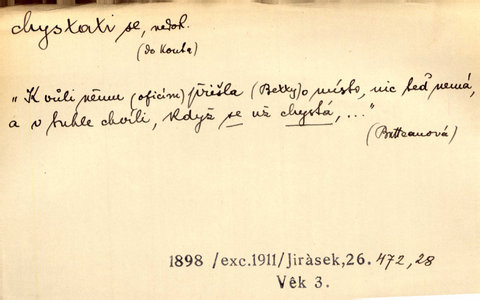 chystati se, nedok.
(do kouta)
"K vůli němu (oficíru) přišla (Betty) o místo, nic teď nemá,
a v tuhle chvíli, když se už chystá, ..."
(Butteanová)
1898 /exc.1911/Jiràsek,26. 472,28
Vêk 3.